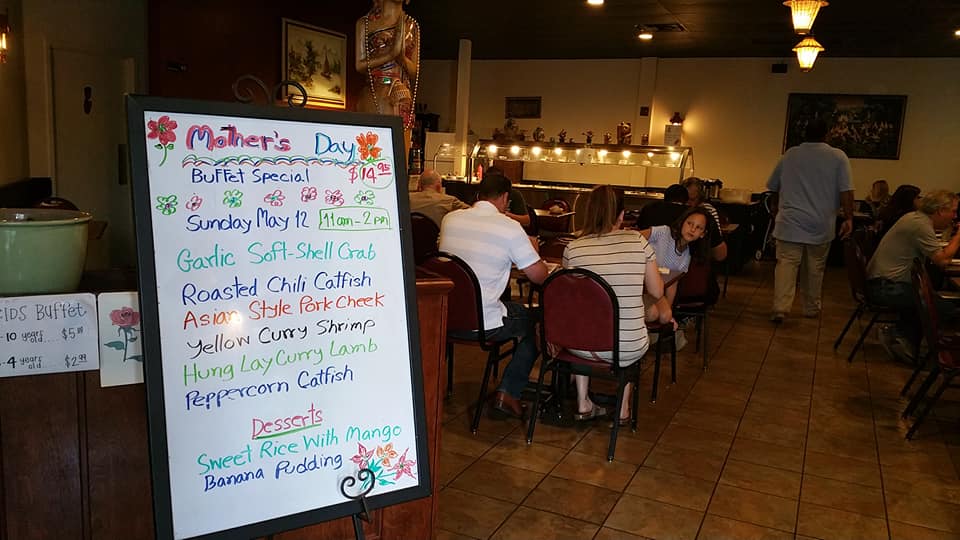 Mother's Day
Buffet Special $14.95
Sunday May 12 11am-2pm
Garlic Soft-Shell Crab
Roasted Chili Catfish
Asian Style Pork Cheek
Yellow Curry Shrimp
Hung Lay Curry Lamb
Peppercorn Catfish
Desserts
Sweet Rice With Mango
Banana Pudding
KIDS Buffet
10 years old....
4 years old.... $2.99